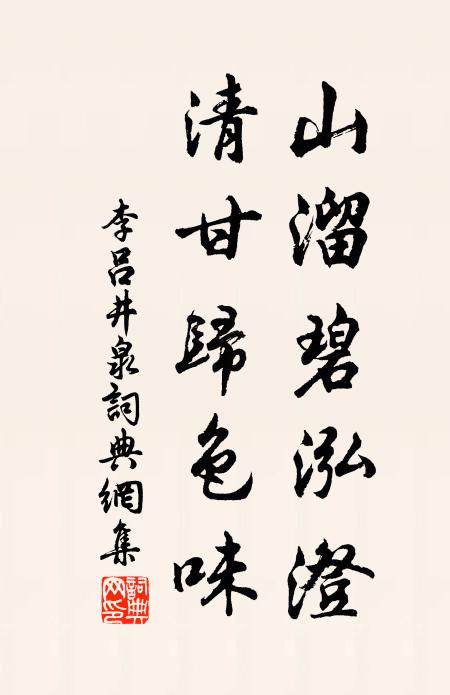 山溜碧泓澄
清甘歸色味
李呂井泉詞典網集
詞典网印